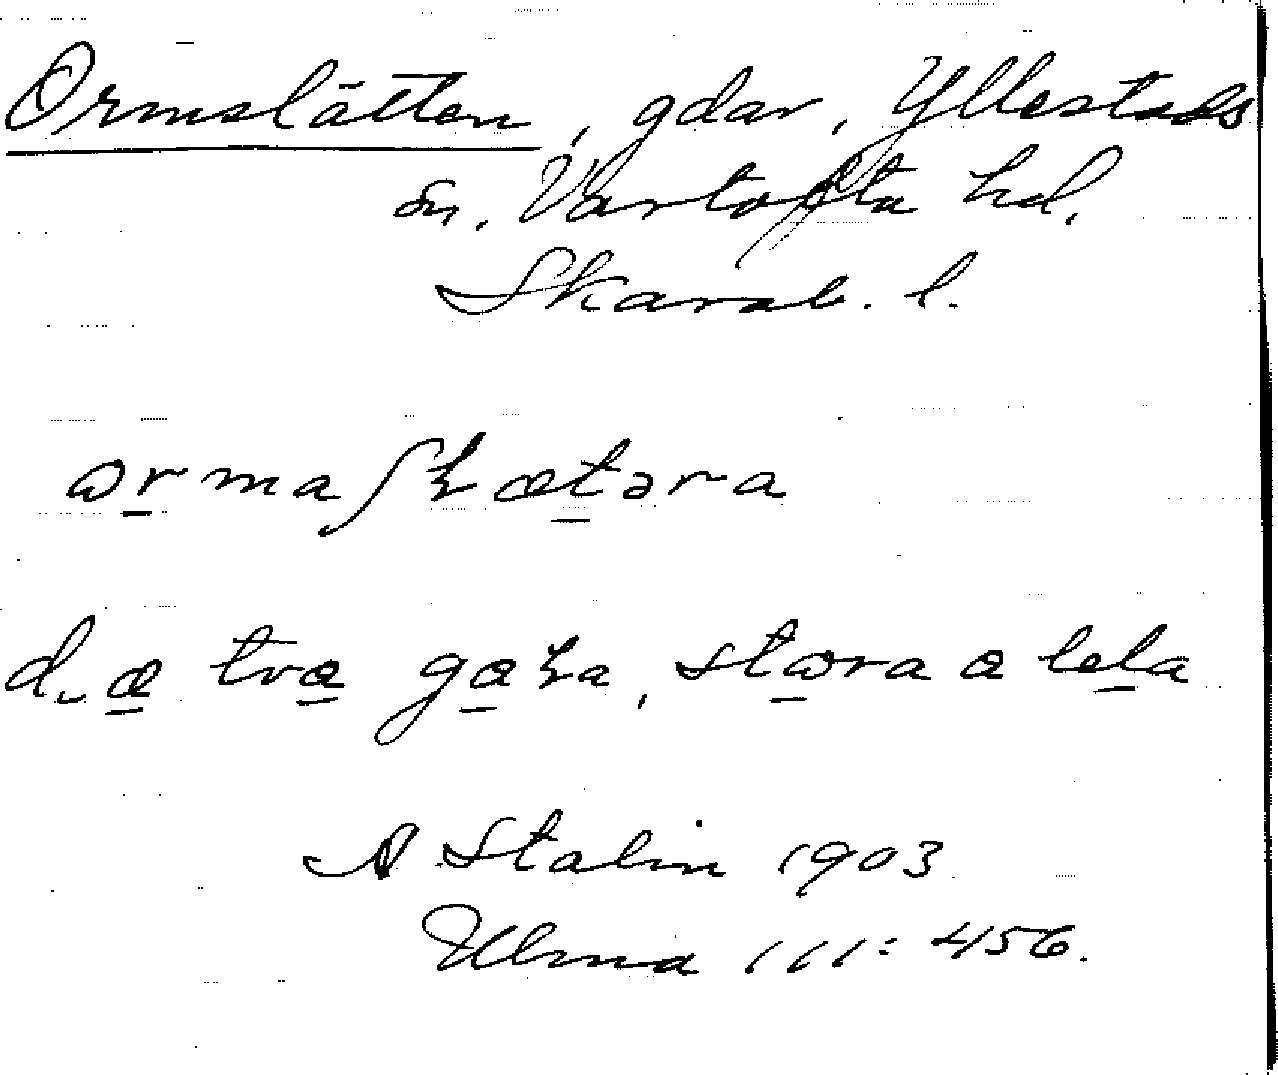 Ormslätten, gdar, Yllestads
sn, Vartofta hd,
Skarab. l.
ɷrmaʃƚætəra
dæ tvɷ gɷƚa, stɷra ɷ leta
A Stalin 1903
Ulma 111:456.